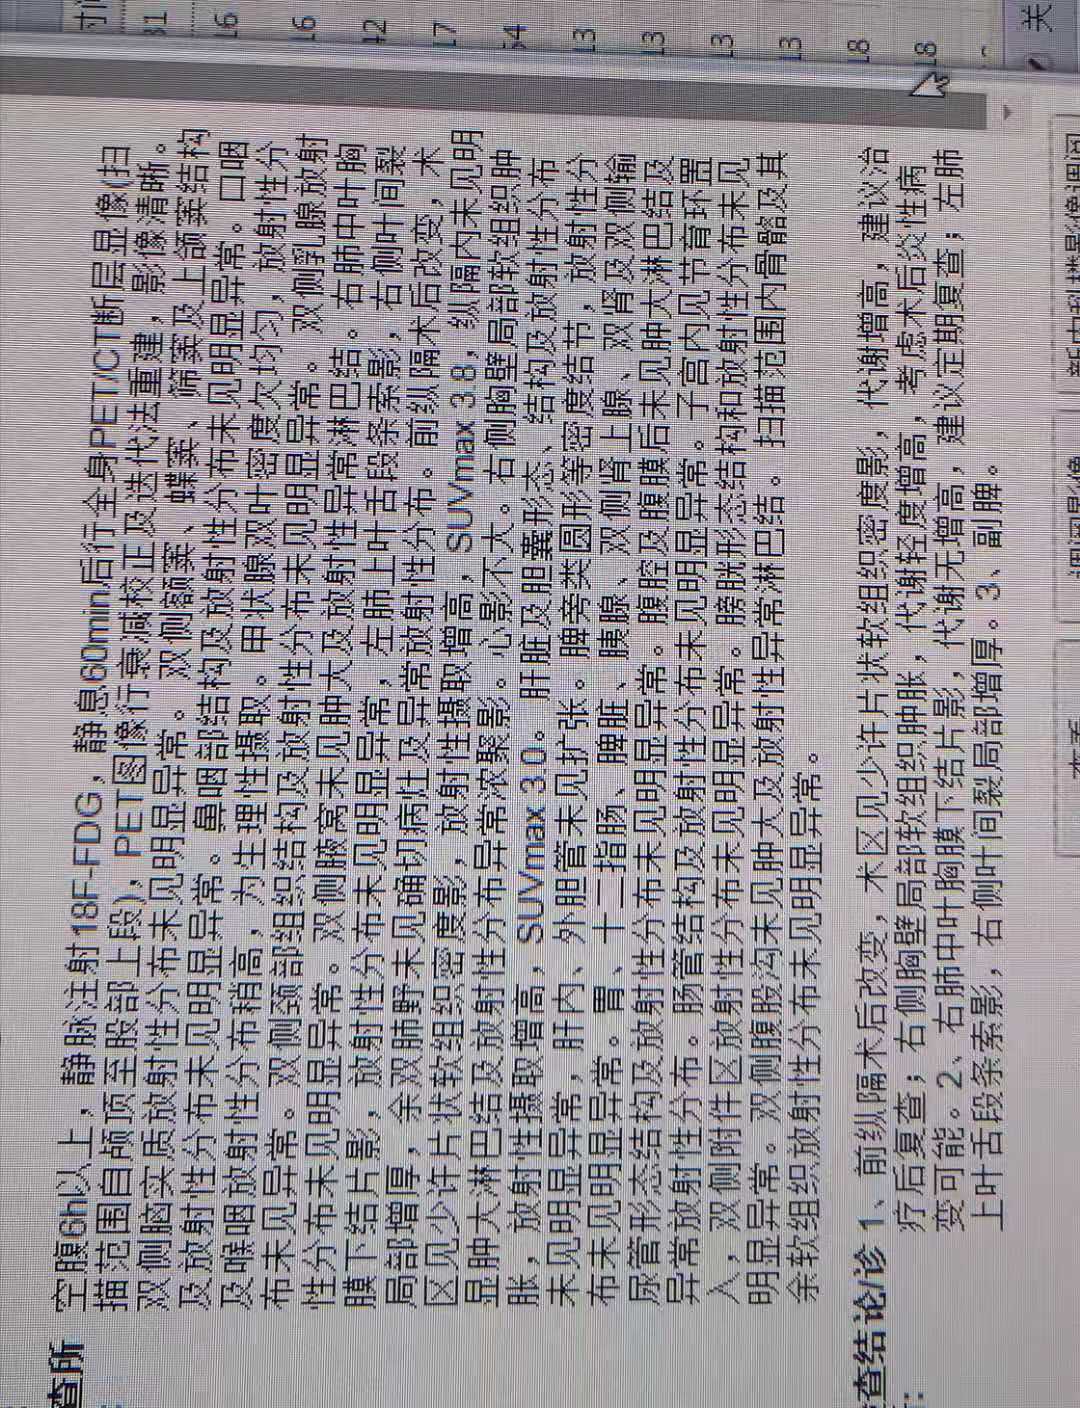 查所 空腹6h以上，静脉注射18F-FDG，静息60min后行全身PET/CT断层显像(扫
描范围自颅顶至股部上段)，PET图像行衰减校正及迭代法重建，影像清晰。
双侧脑实质放射性分布未见明显异常。双侧额窦、蝶窦、筛窦及上颌窦结构
及放射性分布未见明显异常。鼻咽部结构及放射性分布未见明显异常。口咽
及喉咽放射性分布稍高，为生理性摄取。甲状腺双叶密度欠均匀，放射性分
布未见异常。双侧颈部组织结构及放射性分布未见明显异常。双侧乳腺放射
性分布未见明显异常。双侧腋窝未见肿大及放射性异常淋巴结。右肺中叶胸
膜下结片影，放射性分布未见明显异常，左肺上叶舌段条索影，右侧叶间裂
局部增厚，余双肺野未见确切病灶及异常放射性分布。前纵隔术后改变，术
区见少许片状软组织密度影，放射性摄取增高，SUVmax 3.8，纵隔内未见明
显肿大淋巴结及放射性分布异常浓聚影。心影不大。右侧胸壁局部软组织肿
胀，放射性摄取增高，SUVmax 3.0。肝脏及胆囊形态、结构及放射性分布
未见明显异常，肝内、外胆管未见扩张。脾旁类圆形等密度结节，放射性分
布未见明显异常。胃、十二指肠、脾脏、胰腺、双侧肾上腺、双肾及双侧输
尿管形态结构及放射性分布未见明显异常。腹腔及腹膜后未见肿大淋巴结及
异常放射性分布。肠管结构及放射性分布未见明显异常。子宫内见节育环置
入，双侧附件区放射性分布未见明显异常。膀胱形态结构和放射性分布未见
明显异常。双侧腹股沟未见肿大及放射性异常淋巴结。扫描范围内骨骼及其
余软组织放射性分布未见明显异常。
查结论/诊 1、前纵隔术后改变，术区见少许片状软组织密度影，代谢增高，建议治
疗后复查；右侧胸壁局部软组织肿胀，代谢轻度增高，考虑术后炎性病
变可能。2、右肺中叶胸膜下结片影，代谢无增高，建议定期复查；左肺
上叶舌段条索影，右侧叶间裂局部增厚。3、副脾。
31
16
16
42
17
54
13
13
13
13
18
18
关